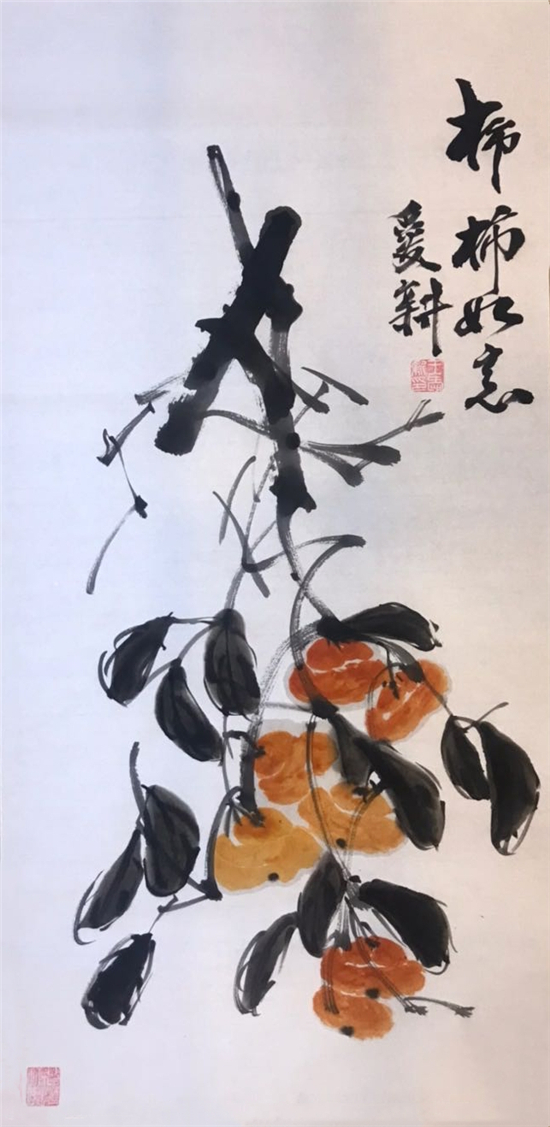 柿柿如意
爱耕